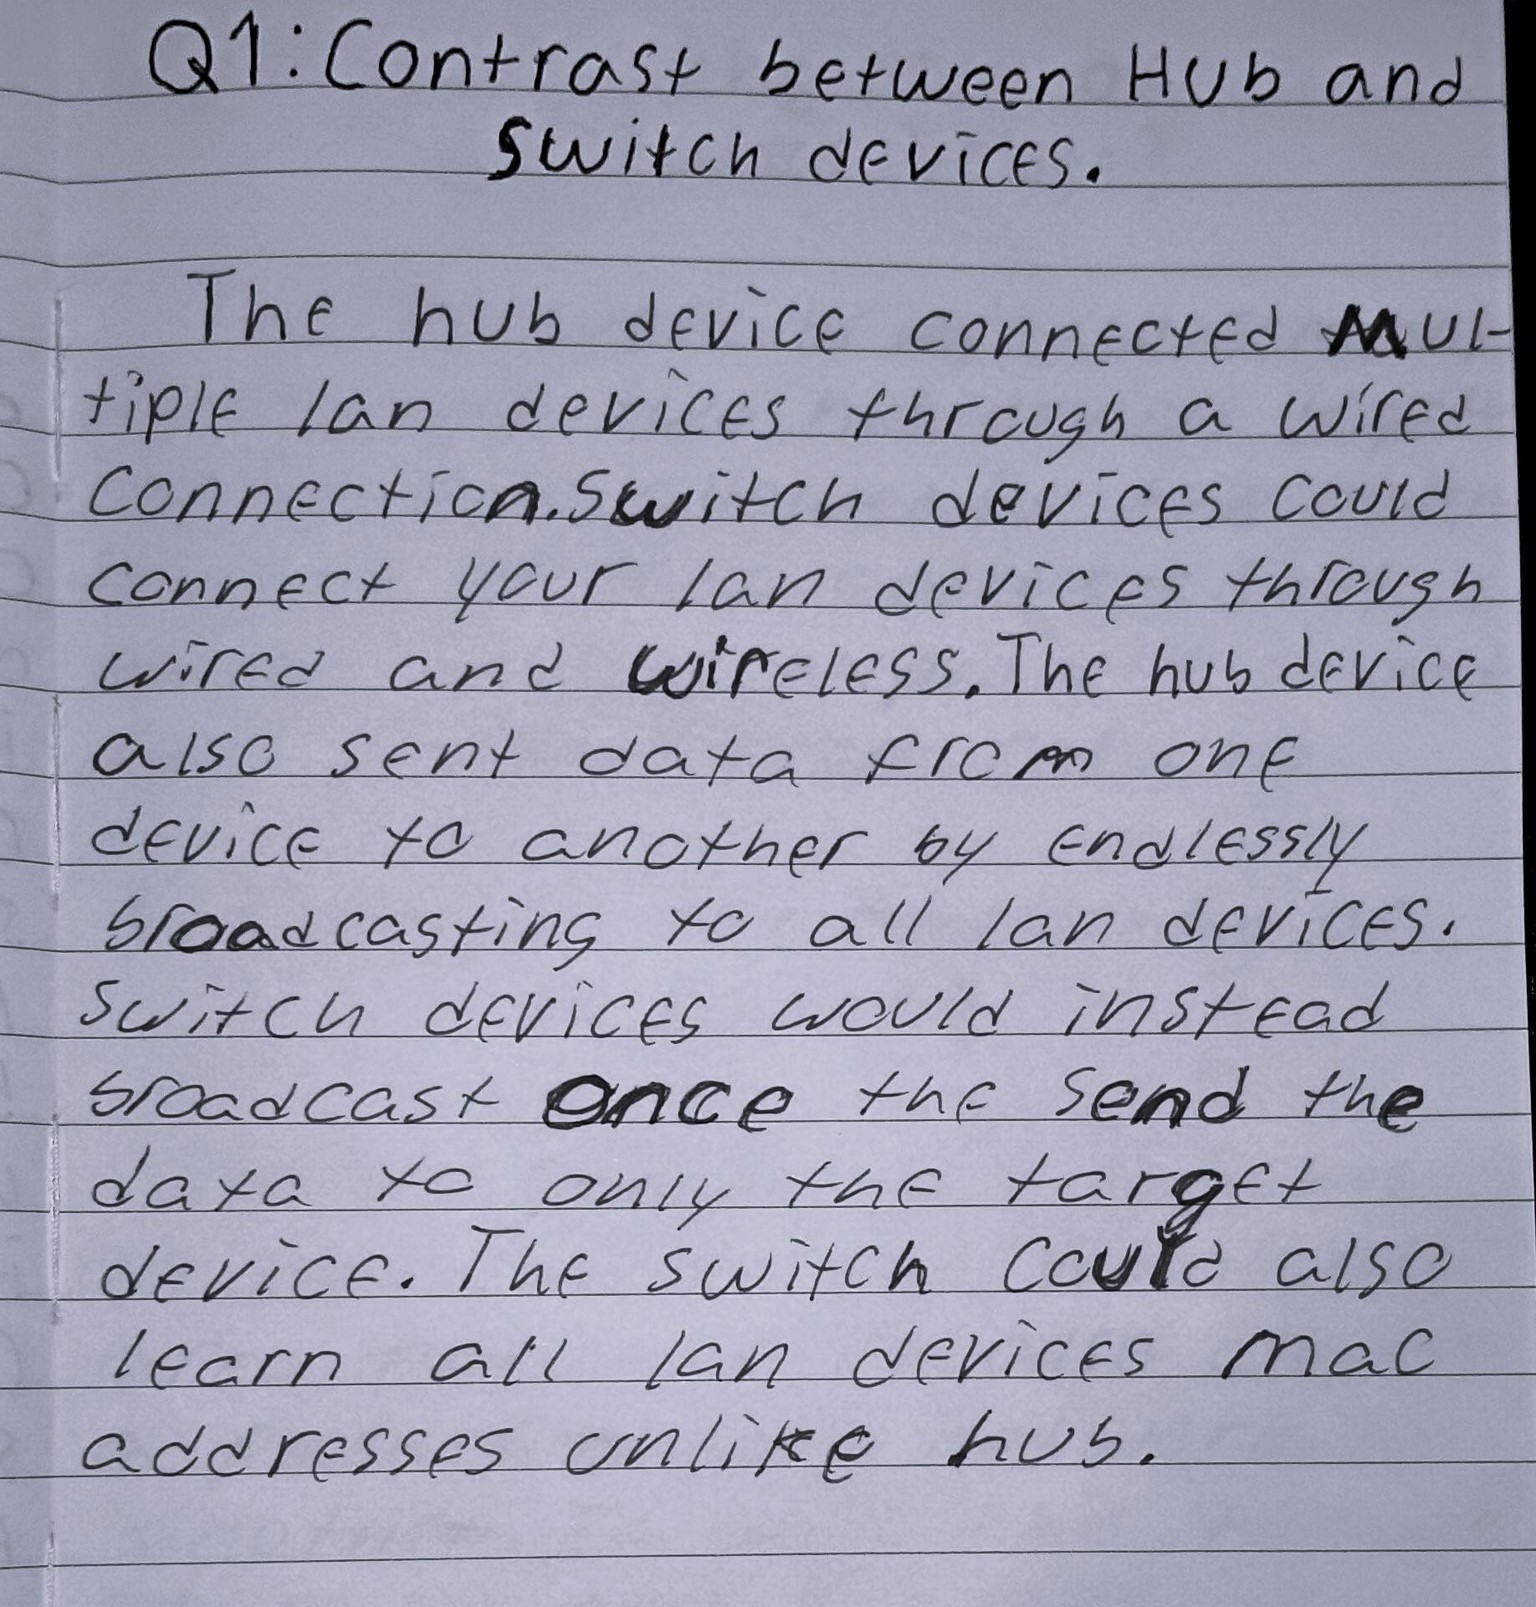 Q1: Contrast between Hub and
switch devices.
The hub device connected mul-
tiple lan devices through a wired
connection. Switch devices could
connect your lan devices through
wired and wireless. The hub device
also sent data from one
device to another by endlessly
broadcasting to all lan devices.
Switch devices would instead
broadcast once the send the
data to only the target
device. The switch could also
learn all lan devices mac
addresses unlike hub.